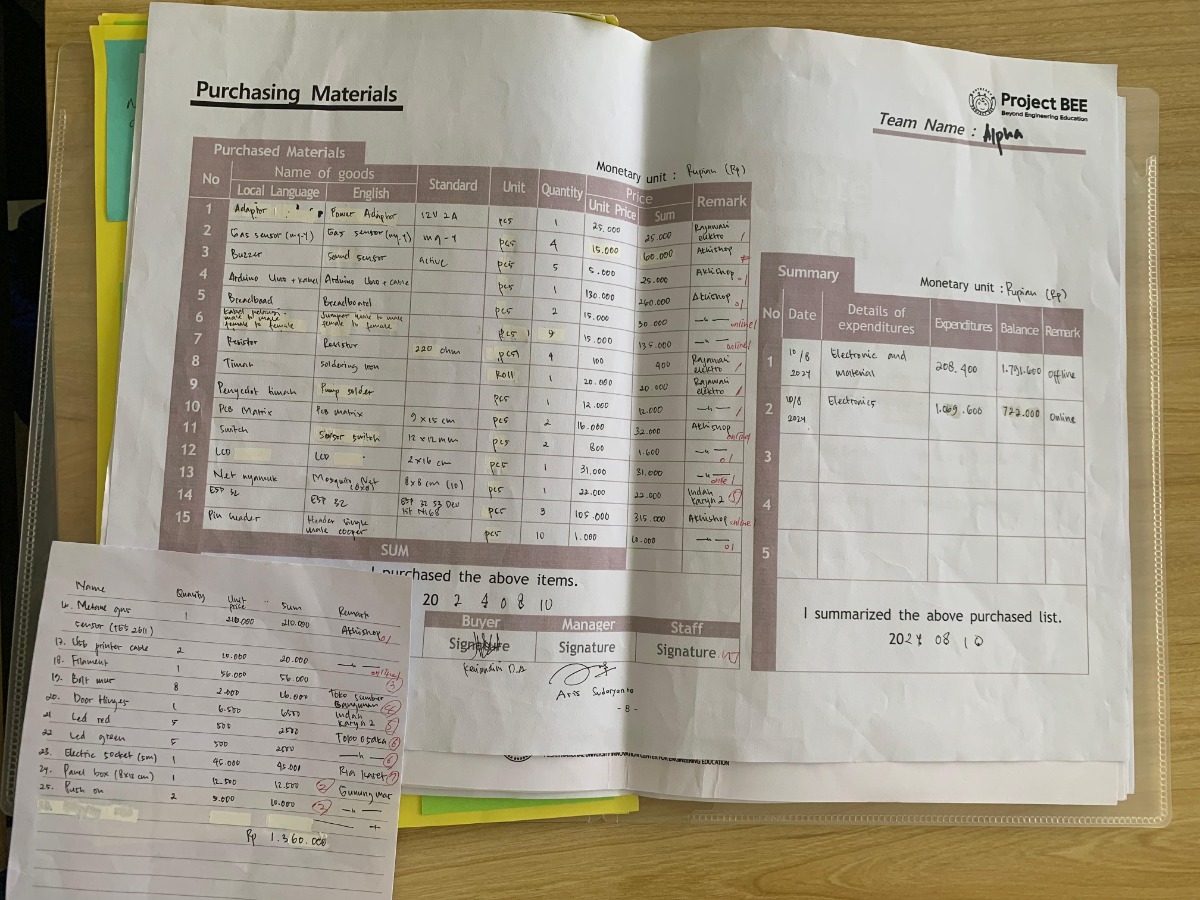 Purchasing Materials
Project BEE
Beyond Engineering Education
Team Name : Alpha
Purchased Materials
Monetary unit : Rupiah (Rp)
No Name of goods Standard Unit Quantity Price Remark
Local Language English Unit Price Sum
1 Adaptor Power Adaptor 12V 2A pcs 1 25.000 25.000 Rajawali elektro
2 Gas sensor (mq-4) Gas sensor (mq-4) mq-4 pcs 4 15.000 60.000 Akhishop
3 Buzzer Sound sensor Active pcs 5 5.000 25.000 Akhishop
4 Arduino Uno + kabel Arduino Uno + cable pcs 1 130.000 260.000 Akhishop
5 Breadboard Breadboard pcs 2 15.000 30.000 —"— online
6 male to male female to female Jumper male to male female to female pcs 9 15.000 135.000 —"— online
7 Resistor Resistor 220 ohm pcs 4 100 400 Rajawali elektro
8 Timah Soldering iron Roll 1 20.000 20.000 Rajawali elektro
9 Penyedot timah Pump solder pcs 1 12.000 12.000 —"—
10 PCB Matrix PCB matrix 9 x 15 cm pcs 2 16.000 32.000 Akhishop
11 Switch Sensor switch 12 x 12 mm pcs 2 800 1.600 —"—
12 LCD LCD 2 x 16 cm pcs 1 31.000 31.000 —"—
13 Net nyamuk Mosquito Net 8x8 cm (10) pcs 1 22.000 22.000 Indah Karya 2 5
14 ESP 32 ESP 32 ESP 32 S3 Dev Kit N16R8 pcs 3 105.000 315.000 Akhishop online
15 Pin header Header single male cooper pcs 10 1.000 10.000 —"—
SUM
I purchased the above items.
20 2 4 0 8 10
Buyer Manager Staff
Signature Signature Signature
- 8 -
Summary
Monetary unit : Rupiah (Rp)
No Date Details of expenditures Expenditures Balance Remark
1 10/8 2024 Electronic and material 208.400 1.791.600 Offline
2 10/8 2024 Electronics 1.069.600 722.000 Online
3
4
5
I summarized the above purchased list.
2024 08 10
Name Quantity Unit price Sum Remark
16. Metane gas sensor (TGS 2611) 1 210.000 210.000 Akhishop
17. Usb printer cable 2 10.000 20.000 —"—
18. Filament 1 56.000 56.000 3
19. Bolt mur 8 2.000 16.000 Toko Sumber Bangunan
20. Door Hinges 1 6.500 6500 Indah Karya 2 5
21 Led red 5 500 2500 Toko osaka 6
22 Led green 5 500 2500 —"— 6
23. Electric socket (5m) 1 45.000 45.000 7
24. Panel box (8x12 cm) 1 12.500 12.500 2
25. Push on 2 5.000 10.000 2 —"—
Rp 1.360.000